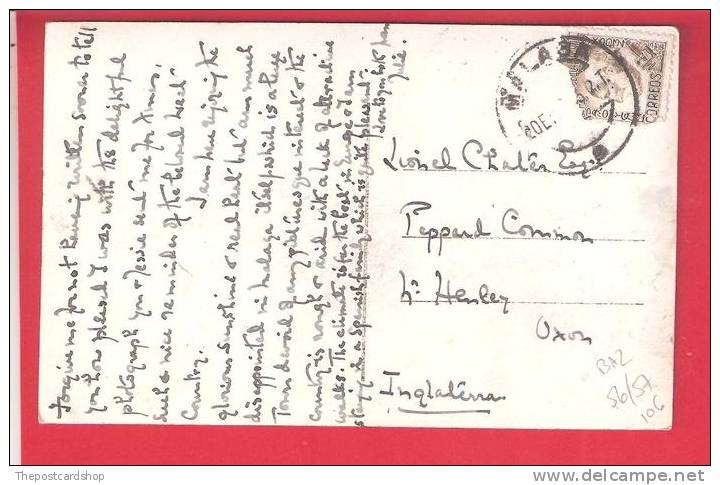 Forgive me for not having written sooner to tell
you how pleased I was with the delightful
photograph you & Jessie sent me for Xmas.
Such a nice reminder of the beloved
Country.
I am here enjoying the
glorious sunshine & real heat but am much
disappointed in Malaga itself which is a large
Town devoid of any picturesque interest & the
Country is rough & arid with a lack of attractive
walks. The climate is far the best in Europe & I am
staying in a Spanish family which is quite pleasant.
Love to you both from
MALAGA
CORREOS
Lionel Chater Esq.
Peppard Common
Nr Henley
Oxon
Inglaterra
BAZ
56/57
106
Thepostcardshop
www.delcampe.net